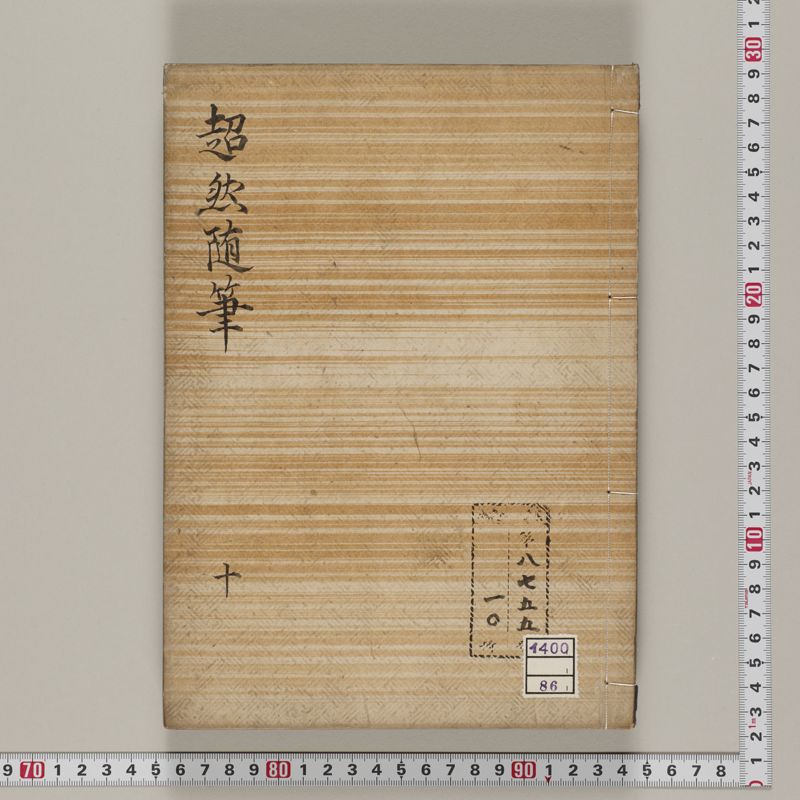 超然随筆
十
八七五五
一〇
1400
86
9 70 1 2 3 4 5 6 7 8 9 80 1 2 3 4 5 6 7 8 9 90 1 2 3 4 5 6 7 8
2 1 30 9 8 7 6 5 4 3 2 1 20 9 8 7 6 5 4 3 2 1 10 9 8 7 6 5 4 3 2 1
1m